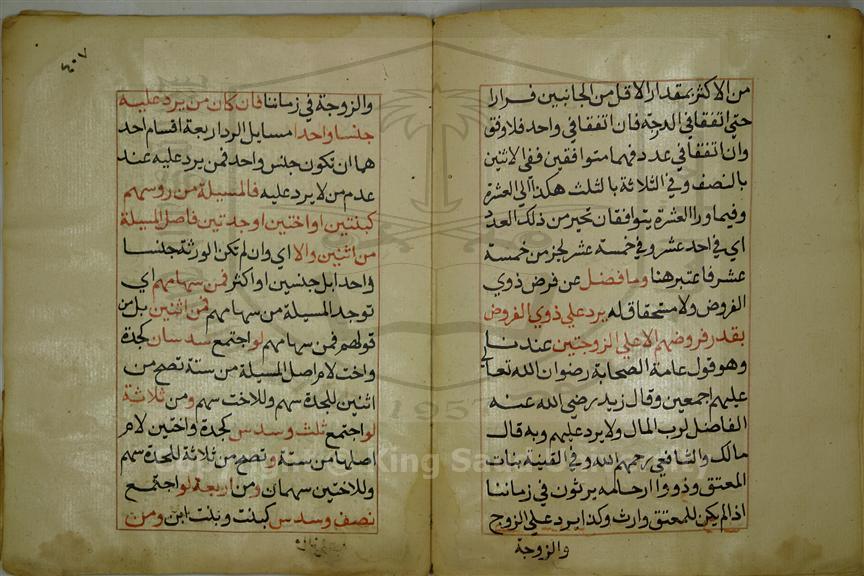 من الاكثر بمقدار الاقل من الجانبين مرارا
حتى اتفقا في الدرجة فان اتفقا في واحد فلا وفق
وان اتفقا في عدد فهما متوافقين ففي الاثنين
بالنصف وفي الثلاثة بالثلث هكذا الى العشرة
وفيما ورا العشرة يتوافقان بجزء من ذلك العدد
اي في احد عشر وفي خمسة عشر بجزء من خمسة
عشر فاعتبر هنا وما فضل عن فرض ذوي
الفروض ولا مستحق له يرد على ذوي الفروض
بقدر فروضهم الا على الزوجين عندنا
وهو قول عامة الصحابة رضوان الله تعالى
عليهم اجمعين وقال زيد رضي الله عنه
الفاضل لرب المال ولا يرد عليهم وبه قال
مالك والشافعي رحمهم الله وفي القنية بنات
المعتق وذووا ارحامه يرثون في زماننا
اذا لم يكن للمعتق وارث وكذا يرد على الزوج
والزوجة
٤٠٧
والزوجة في زماننا فان كان من يرد عليه
جنسا واحدا مسايل الرد اربعة اقسام احد
هما ان تكون جنس واحد فمن يرد عليه عند
عدم من لا يرد عليه فالمسيلة من روسهم
كبنتين او اختين او جدتين فاصل المسيلة
من اثنين والا اي وان لم تكن الورثة جنسا
واحد ابل جنسين او اكثر فمن سهامهم اي
توجد المسيلة من سهامهم فمن اثنين بل من
قولهم فمن سهامهم لو اجتمع سدسان كجدة
واخت لام اصل المسيلة من ستة تصح من
اثنين للجدة سهم وللاخت سهم ومن ثلاثة
لو اجتمع ثلث وسدس كجدة واختين لام
اصلها من ستة وتصح من ثلاثة للجدة سهم
وللاختين سهمان ومن اربعة لو اجتمع
نصف وسدس كبنت وبنت ابن ومن